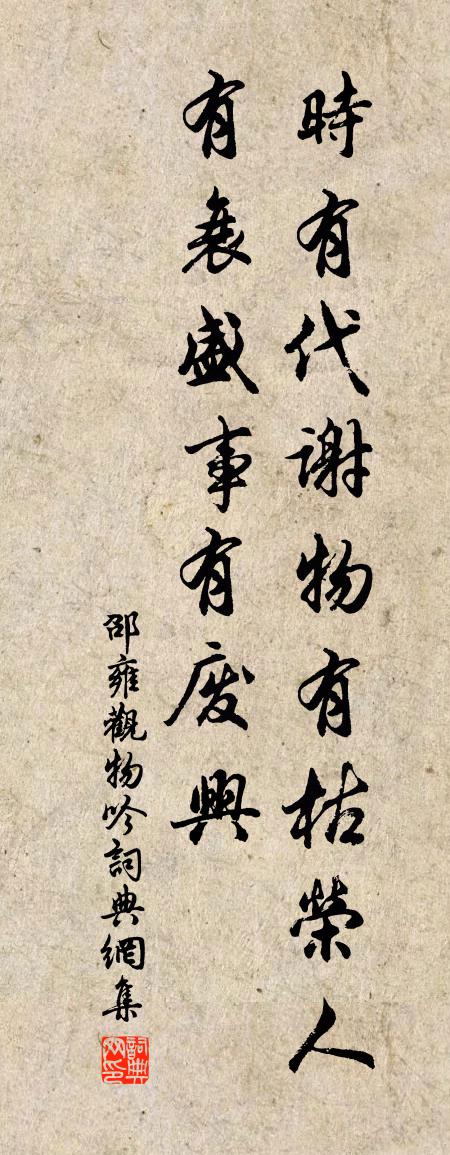 時有代謝物有枯榮人
有衰盛事有廢興
邵雍觀物吟詞典網集
詞典网印